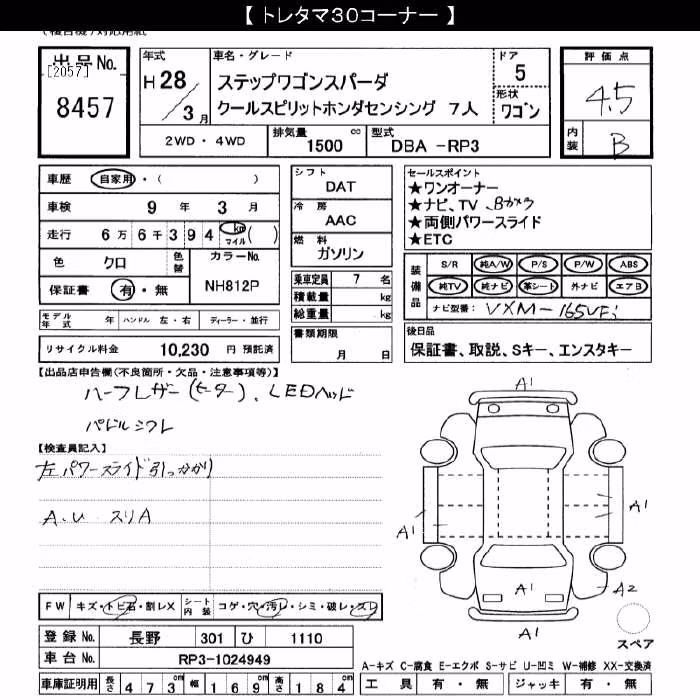 【 トレタマ30コーナー 】
出品No.
[2057]
8457
年式 H28/3月
車名・グレード
ステップワゴンスパーダ
クールスピリットホンダセンシング 7人
ドア 5
形状 ワゴン
評価点 4.5
内装 B
2WD・4WD
排気量 1500 cc
型式 DBA -RP3
車歴 自家用・( )
車検 9年 3月
走行 6万6千394 km マイル ( )
色 クロ
色替
カラーNo. NH812P
保証書 有・無
モデル年式 年 ハンドル 左・右 ディーラー・並行
リサイクル料金 10,230 円 預託済
シフト DAT
冷房 AAC
燃料 ガソリン
乗車定員 7 名
積載量 kg
総重量 kg
書類期限 月 日
セールスポイント
★ワンオーナー
★ナビ、TV、Bカメラ
★両側パワースライド
★ETC
装備品
S/R 純A/W P/S P/W ABS
純TV 純ナビ 革シート 外ナビ エアB
ナビ型番: VXM-165VFi
後日品
保証書、取説、Sキー、エンスタキー
【出品店申告欄(不良箇所・欠品・注意事項等)】
ハーフレザー(ヒーター)、LEDヘッド
パドルシフト
【検査員記入】
左パワースライド引っかかり
A、U、スリA
A1
A1
A1
A1
A2
A1
スペア
FW キズ・トビ石・割レX シート内装 コゲ・穴・汚レ・シミ・破レ・スレ
登録No. 長野 301 ひ 1110
車台No. RP3-1024949
車庫証明用 長さ 473cm 幅 169cm 高さ 184cm
A-キズ C-腐食 E-エクボ S-サビ U-凹ミ W-補修 XX-交換済
工具 有・無 ジャッキ 有・無